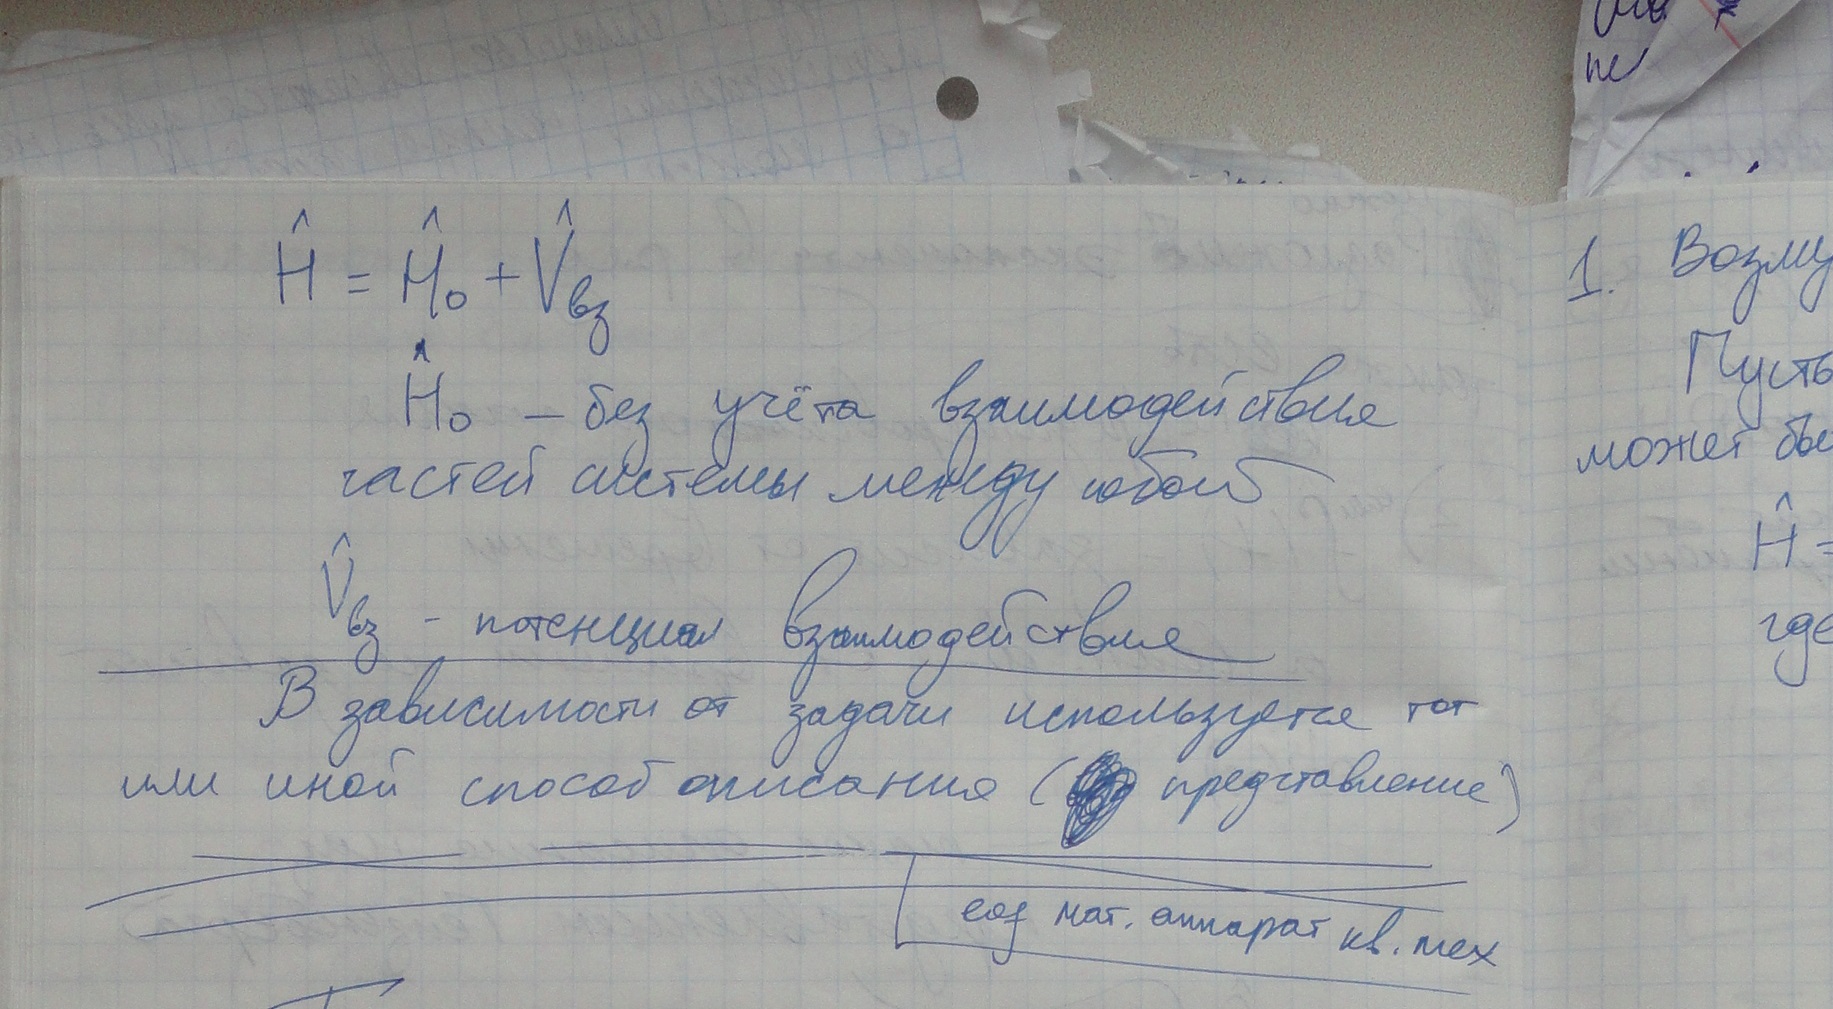 Ĥ = Ĥ₀ + V̂вз
Ĥ₀ – без учёта взаимодействия
частей системы между собой
V̂вз - потенциал взаимодействия
В зависимости от задачи используется тот
или иной способ описания ( представление)
мат. аппарат кв. мех
1. Возму
Пусть
может бы
Ĥ =
где